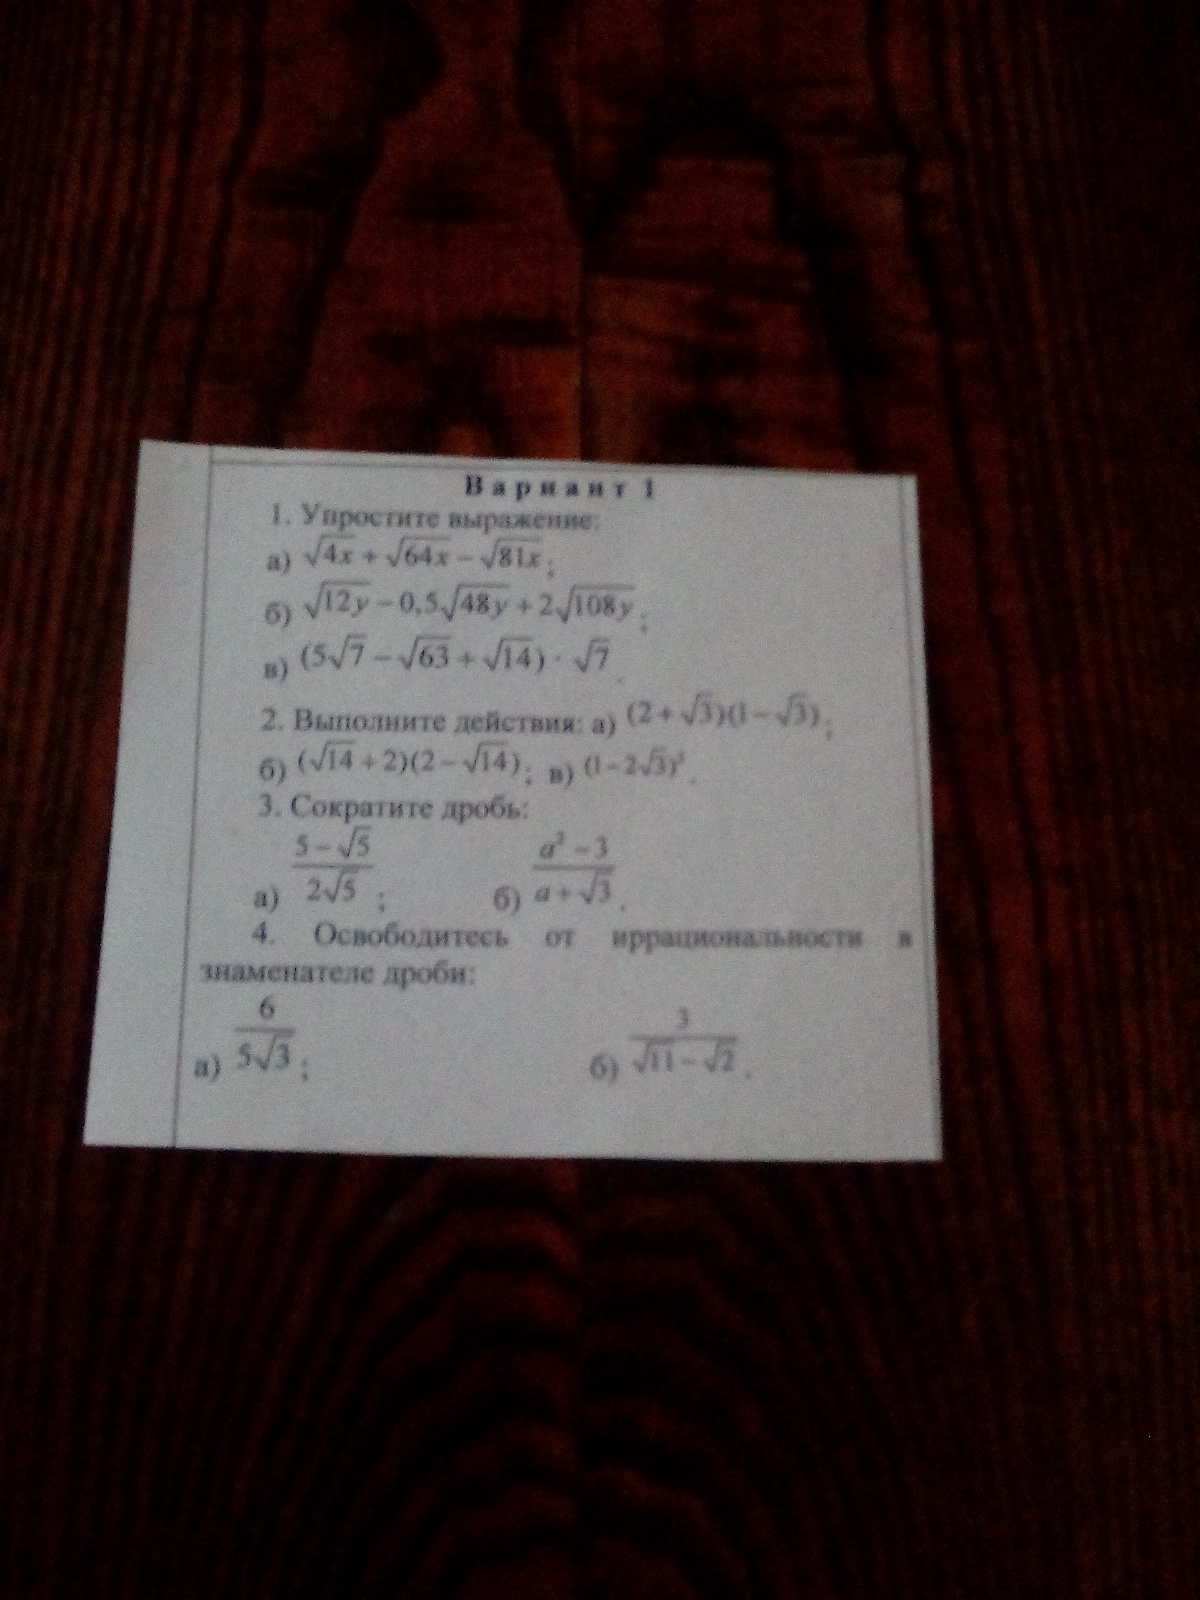 Вариант 1
1. Упростите выражение:
а) √4x + √64x − √81x ;
б) √12y − 0,5√48y + 2√108y ;
в) (5√7 − √63 + √14) · √7 .
2. Выполните действия: а) (2 + √3)(1 − √3) ;
б) (√14 + 2)(2 − √14) ; в) (1 − 2√3)² .
3. Сократите дробь:
а) (5 − √5)/(2√5) ; б) (a² − 3)/(a + √3) .
4. Освободитесь от иррациональности в
знаменателе дроби:
а) 6/(5√3) ; б) 3/(√11 − √2) .